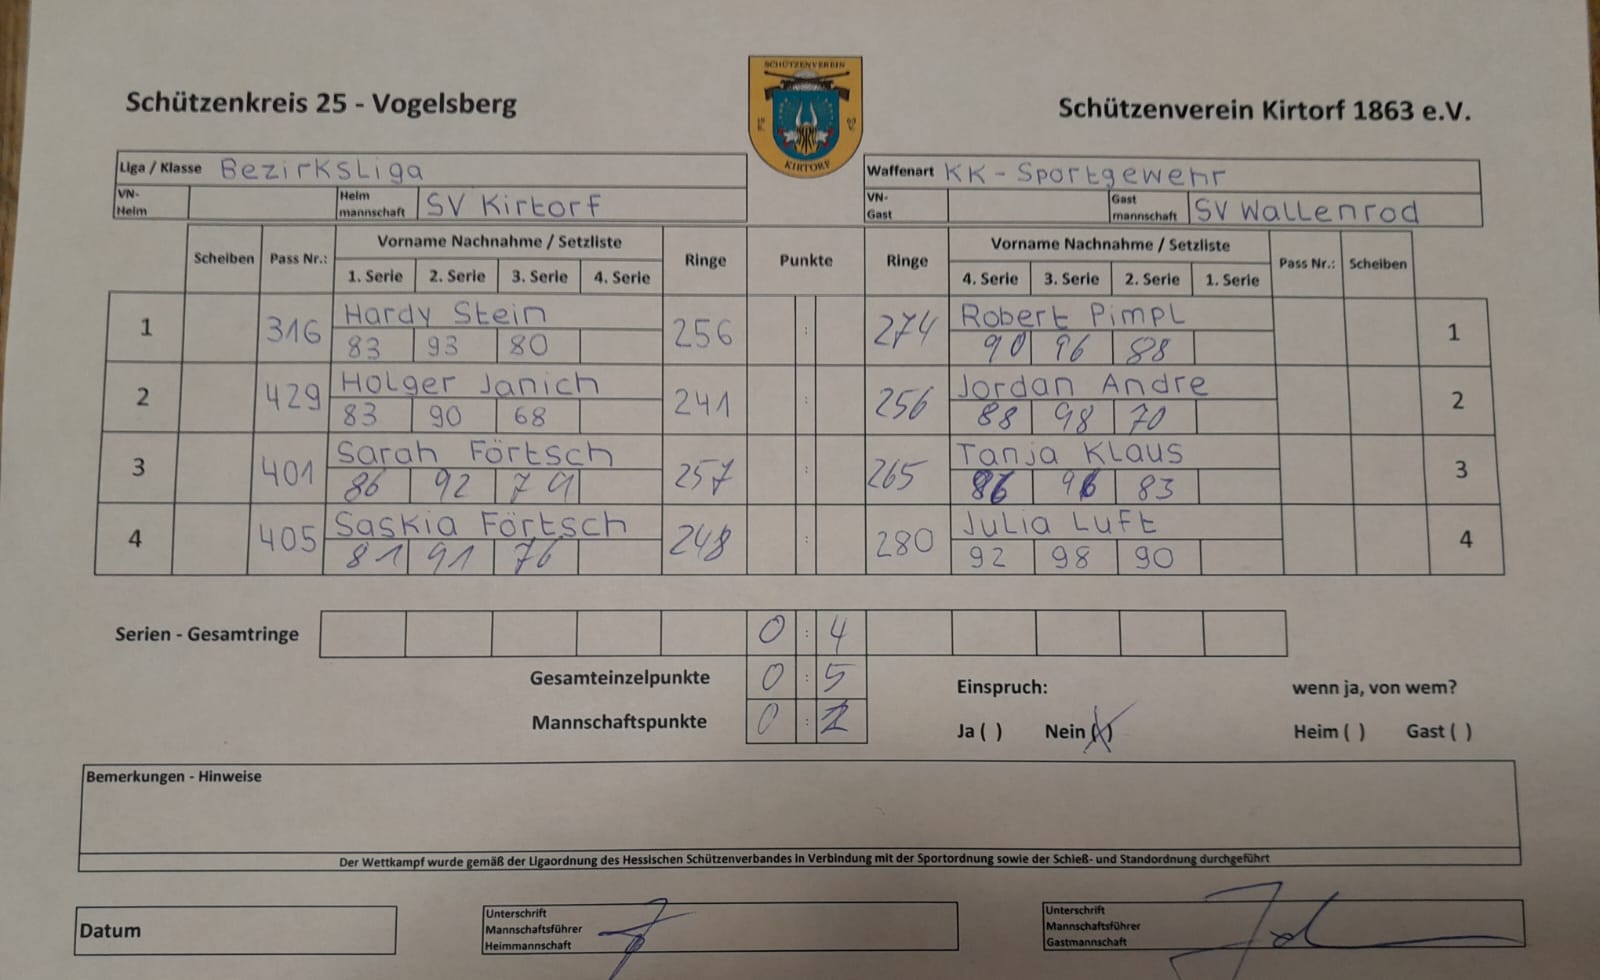 SCHÜTZENVEREIN
KIRTORF
Schützenkreis 25 - Vogelsberg
Schützenverein Kirtorf 1863 e.V.
Liga / Klasse Bezirksliga
Waffenart KK - Sportgewehr
VN-Heim Heim mannschaft SV Kirtorf
VN-Gast Gast mannschaft SV Wallenrod
Scheiben Pass Nr.: Vorname Nachnahme / Setzliste Ringe Punkte Ringe Vorname Nachnahme / Setzliste Pass Nr.: Scheiben
1. Serie 2. Serie 3. Serie 4. Serie 4. Serie 3. Serie 2. Serie 1. Serie
1 316 Hardy Stein 256 : 274 Robert Pimpl 1
83 93 80 90 96 88
2 429 Holger Janich 241 : 256 Jordan Andre 2
83 90 68 88 98 70
3 401 Sarah Förtsch 257 : 265 Tanja Klaus 3
86 92 79 86 96 83
4 405 Saskia Förtsch 248 : 280 Julia Luft 4
81 91 76 92 98 90
Serien - Gesamtringe 0 : 4
Gesamteinzelpunkte 0 : 5
Mannschaftspunkte 0 : 2
Einspruch: wenn ja, von wem?
Ja ( ) Nein (X) Heim ( ) Gast ( )
Bemerkungen - Hinweise
Der Wettkampf wurde gemäß der Ligaordnung des Hessischen Schützenverbandes in Verbindung mit der Sportordnung sowie der Schieß- und Standordnung durchgeführt
Datum
Unterschrift
Mannschaftsführer
Heimmannschaft
Unterschrift
Mannschaftsführer
Gastmannschaft